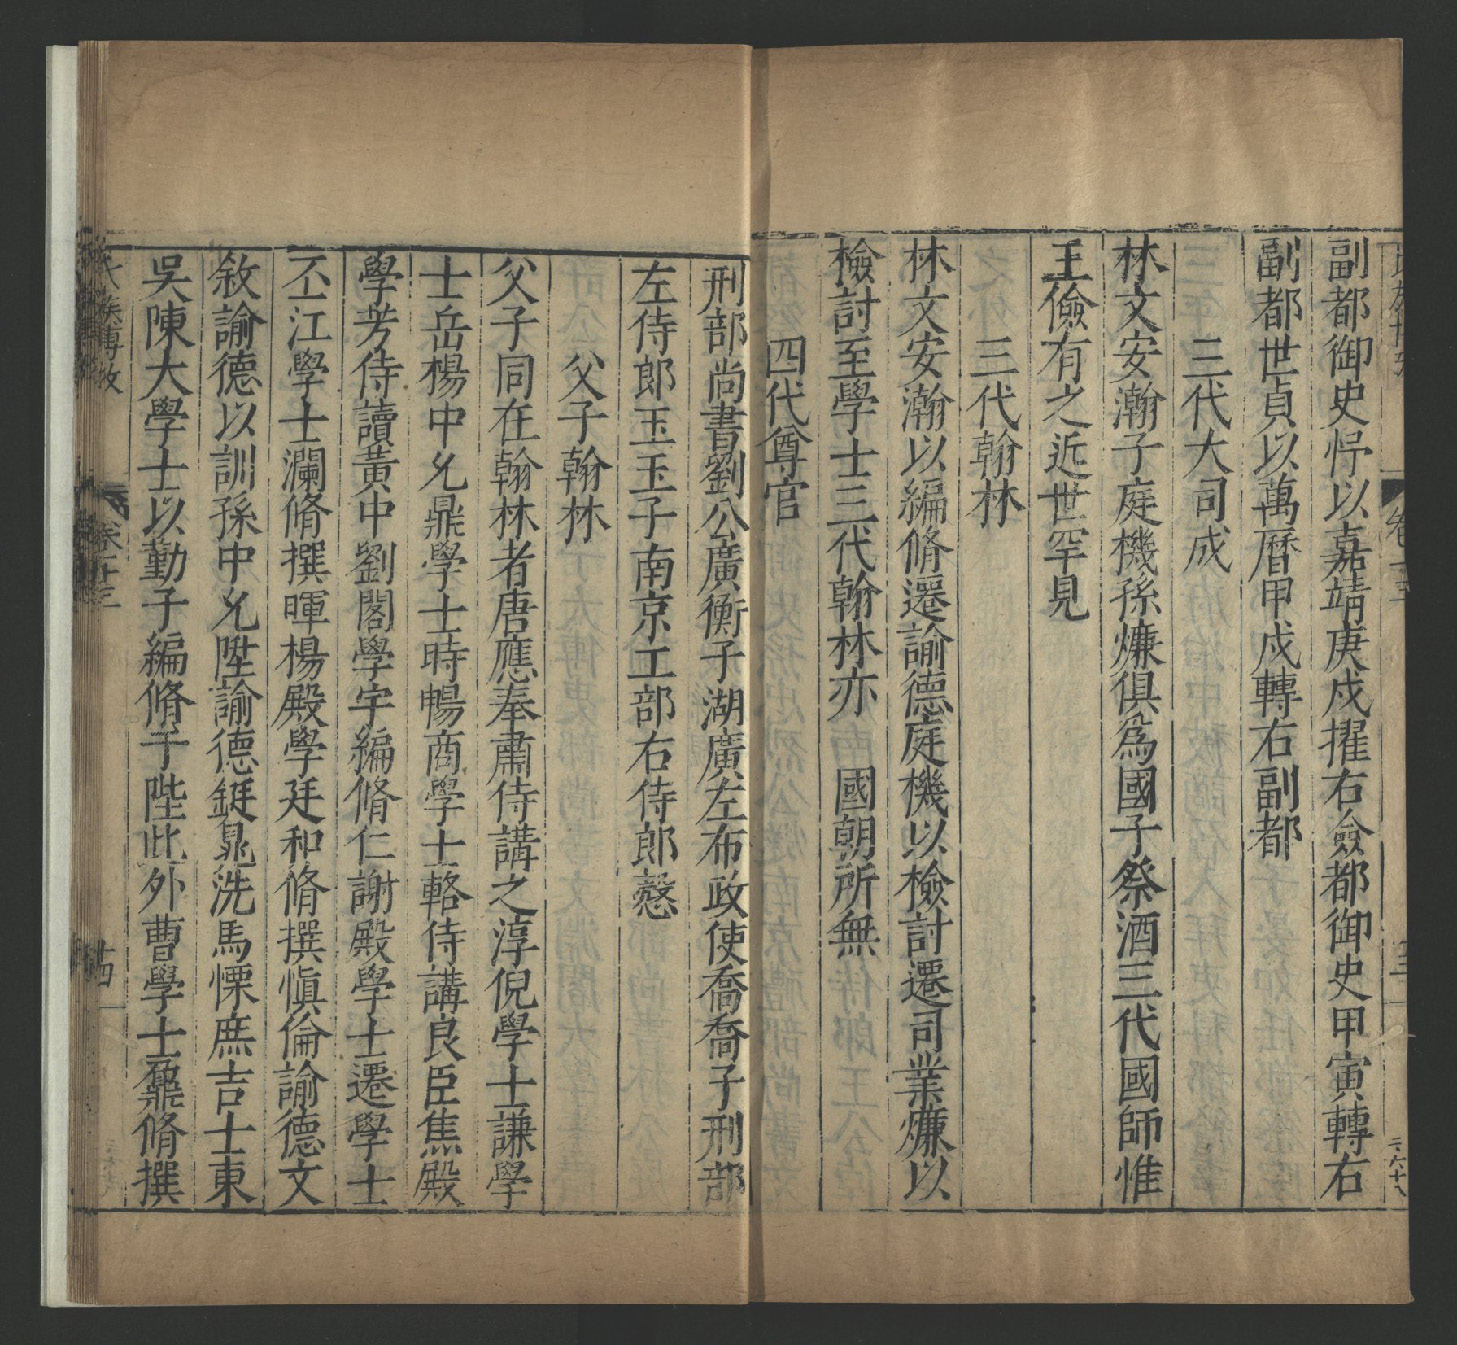 副都御史忬以嘉靖庚戍擢右僉都御史甲寅轉右
副都世貞以萬曆甲戍轉右副都
三代大司成
林文安瀚子庭機孫燫俱爲國子祭酒三代國師惟
王儉有之近世罕見
三代翰林
林文安瀚以編脩遷諭德庭機以檢討遷司業燫以
檢討至學士三代翰林亦 國朝所無
四代尊官
刑部尚書劉公廣衡子湖廣左布政使喬喬子刑部
左侍郎玉玉子南京工部右侍郎慤
父子翰林
父子同在翰林者唐應奉肅侍講之淳倪學士謙學
士岳楊中允鼎學士時暢商學士輅侍講良臣焦殿
學芳侍讀黃中劉閣學宇編脩仁謝殿學士遷學士
丕江學士瀾脩撰暉楊殿學廷和脩撰愼倫諭德文
敘諭德以訓孫中允陞諭德鋌晁洗馬慄庶吉士東
吳陳大學士以勤子編脩于陛此外曹學士鼐脩撰
卷十三
十四